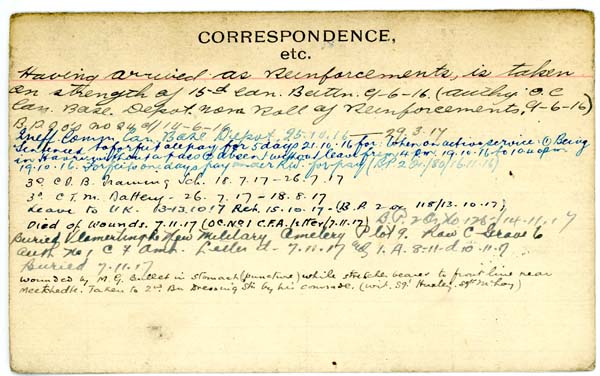 CORRESPONDENCE,
etc.
Having arrived as Reinforcements, is taken
on strength of 15th Can. Battn. 9-6-16 (authy O.C
Can. Base Depot. Nom Roll of Reinforcements, 9-6-16)
B.P. 2 O's no 24 of 14-6-16
Can. Base Depot. 25.10.16 — 29.3.17
Sentenced to forfeit all pay for 5 days 21.10.16 for: When on active service: (1) Being
in Havre without a pass (2) Absent without leave from 4 pm. 19.10.16 to 10.40 pm
19.10.16. Forfeits one days pay under R.W. for pay
3° C.I.B. Training Sch. 18.7.17 - 26.7.17
3° C T.M. Battery - 26.7.17 - 18.8.17
Leave to U.K. 3-13.10.17 Ret. 15.10.17 - (B.P. 2 or 118/13.10.17)
Died of Wounds. 7.11.17 (OC. No 1 C.F.A. letter/7.11.17) B.P. 2 O. No 128 14-11.17
Buried Vlamertinghe New Military Cemetery Plot 9. Row C Grave 6
Auth No 1 C F Amb. Letter d. 7.11.17 I.A. 8-11-d 10.11.17
Buried 7.11.17
Wounded by M.G. Bullet in stomach (puncture) while stretcher bearer to front line near
Meetcheele. Taken to 2nd Bn Dressing Stn by his comrade. (wit. Sgt Huxley. Sgt McKay)